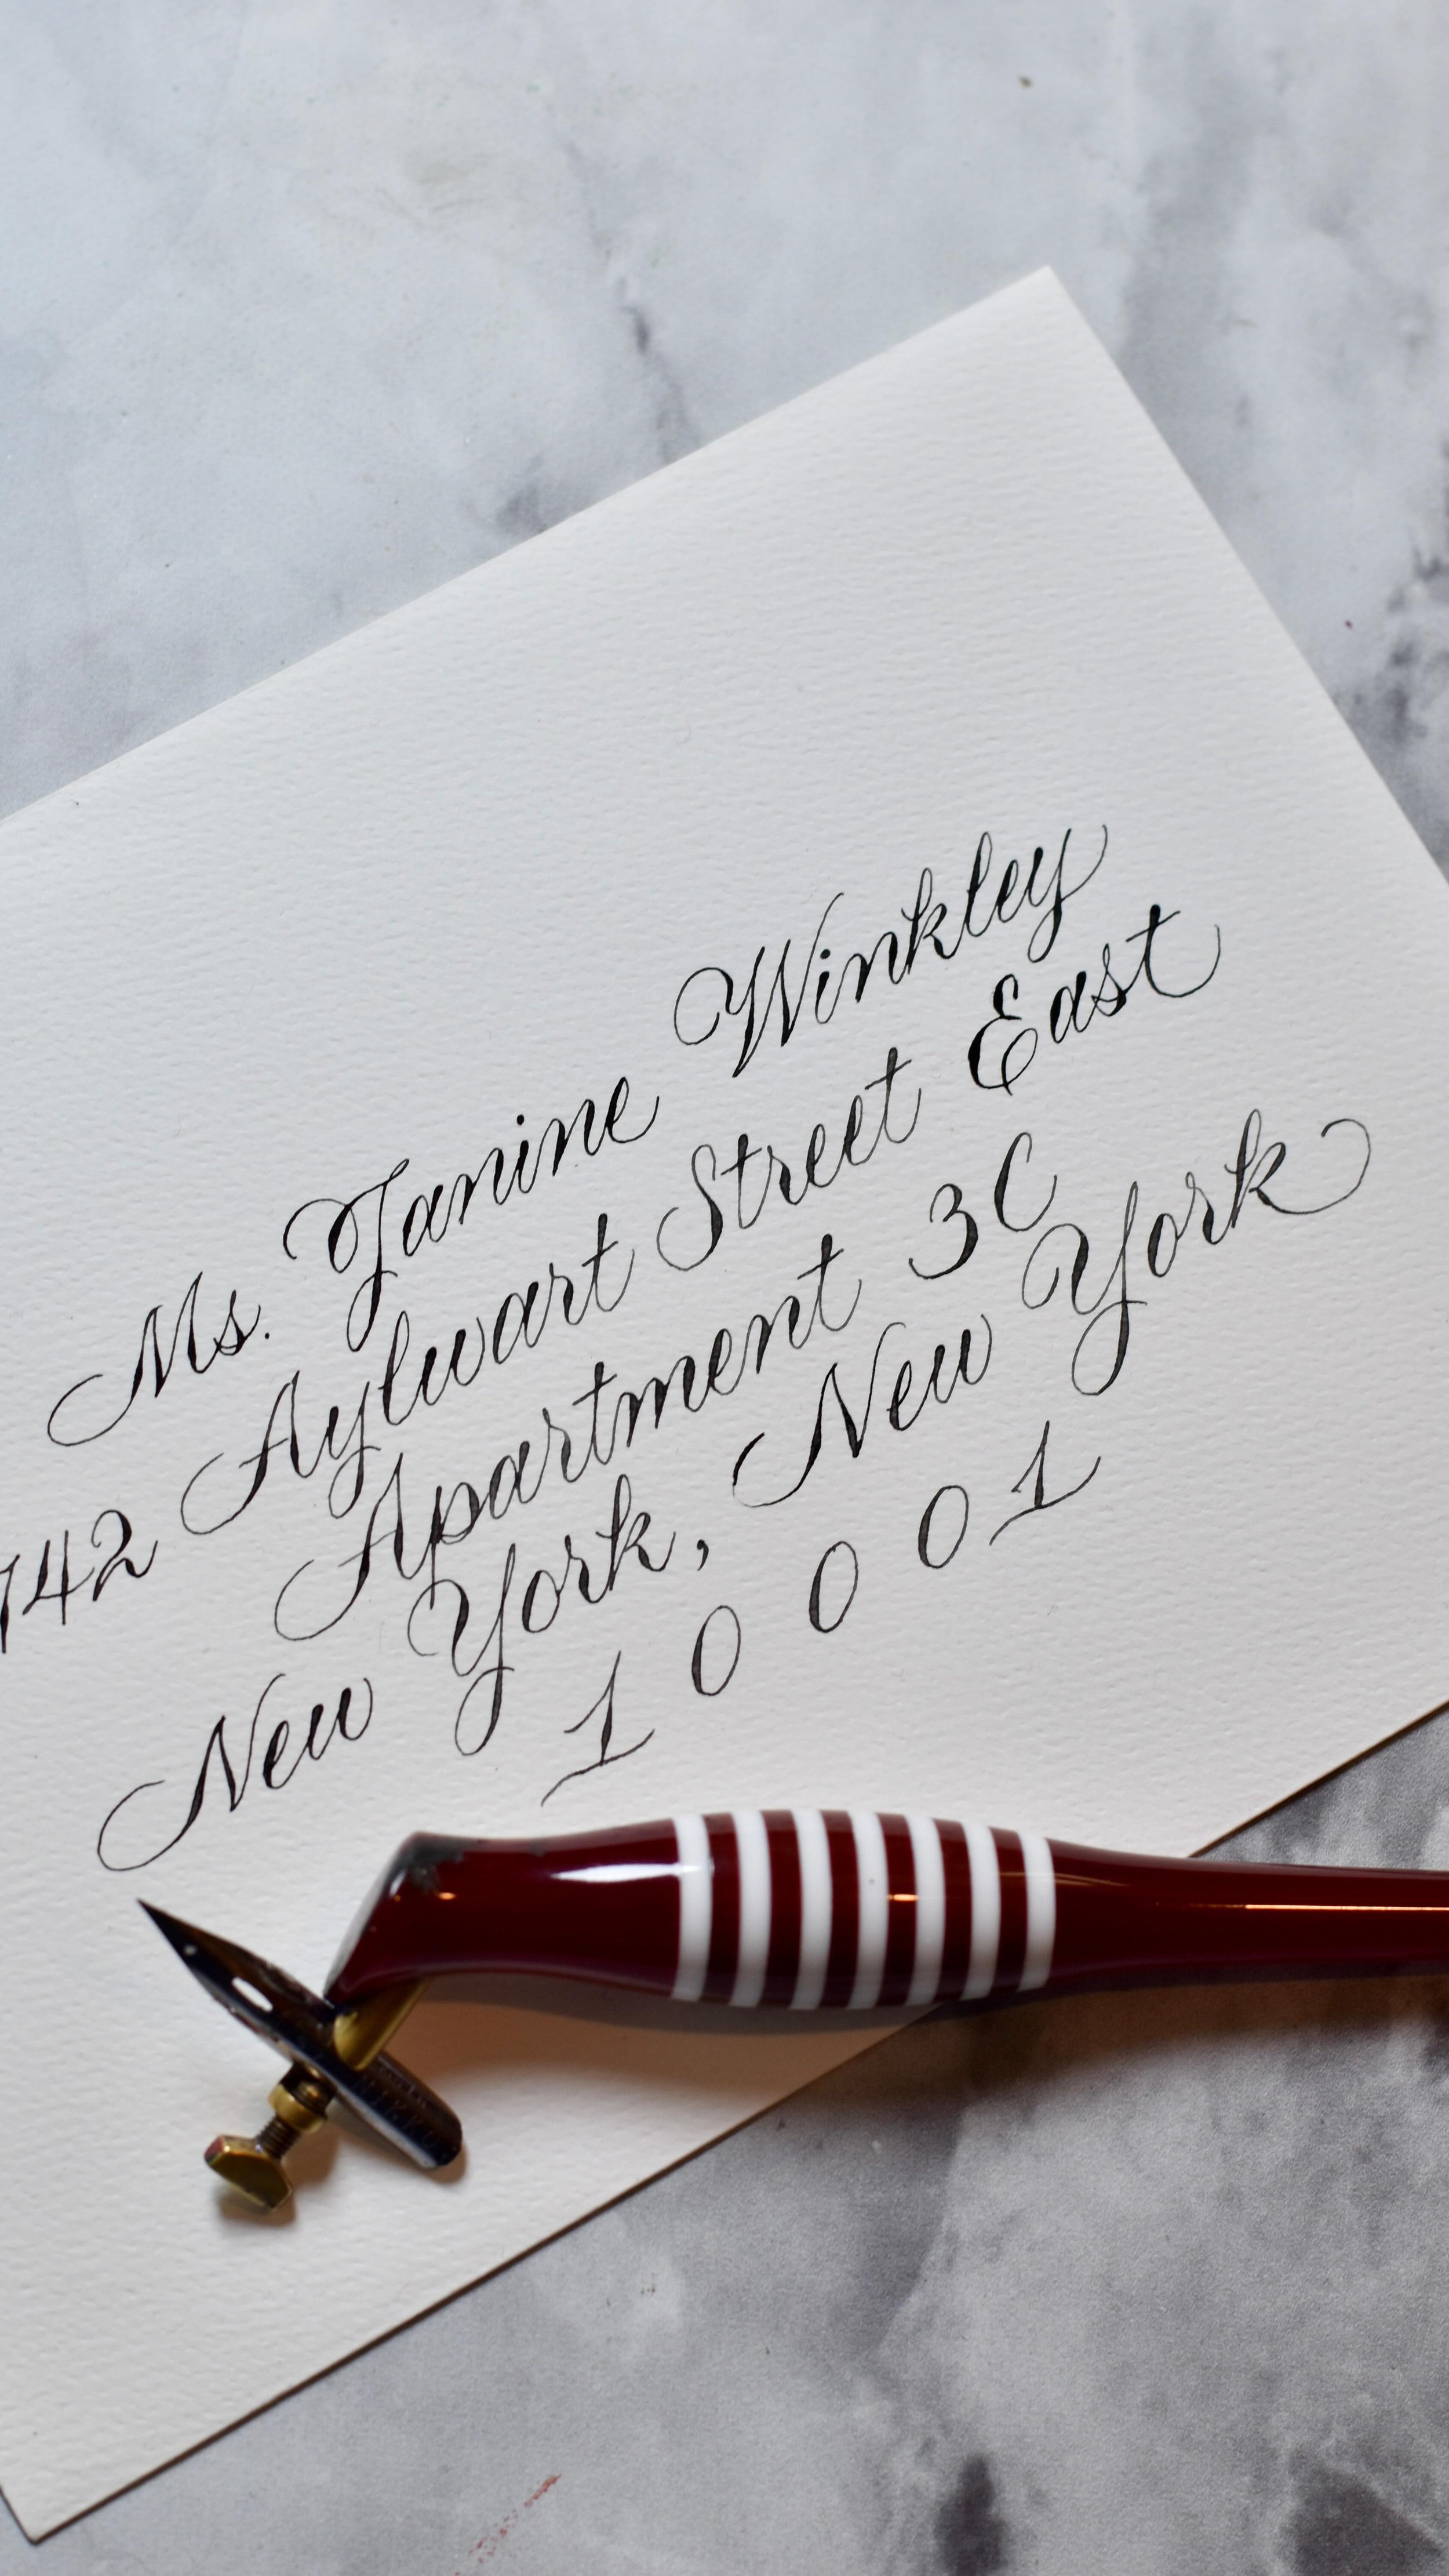 Ms. Janine Winkley
742 Aylwart Street East
Apartment 3C
New York, New York
1 0 0 0 1